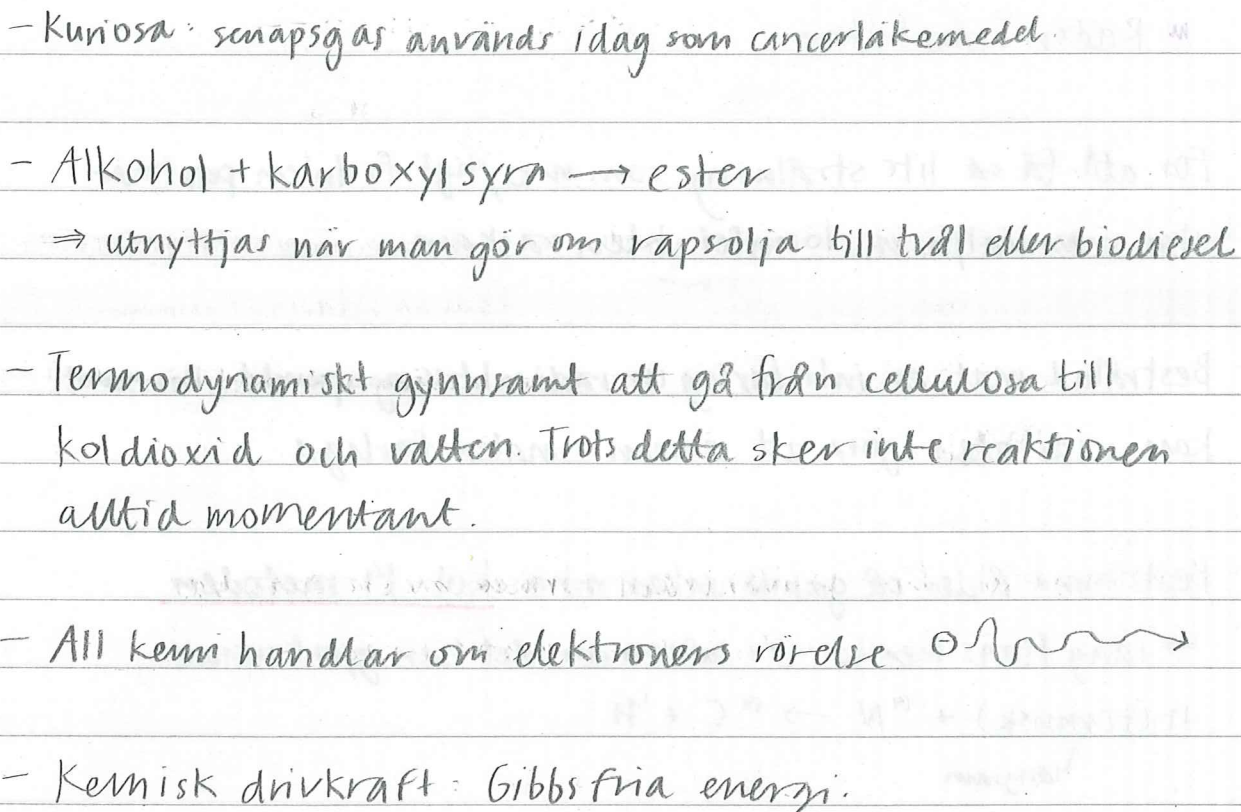 - Kuriosa: senapsgas används idag som cancerläkemedel
- Alkohol + karboxylsyra → ester
⇒ utnyttjas när man gör om rapsolja till tvål eller biodiesel
- Termodynamiskt gynnsamt att gå från cellulosa till
koldioxid och vatten. Trots detta sker inte reaktionen
alltid momentant.
- All kemi handlar om elektroners rörelse ⊖→
- Kemisk drivkraft: Gibbs fria energi.